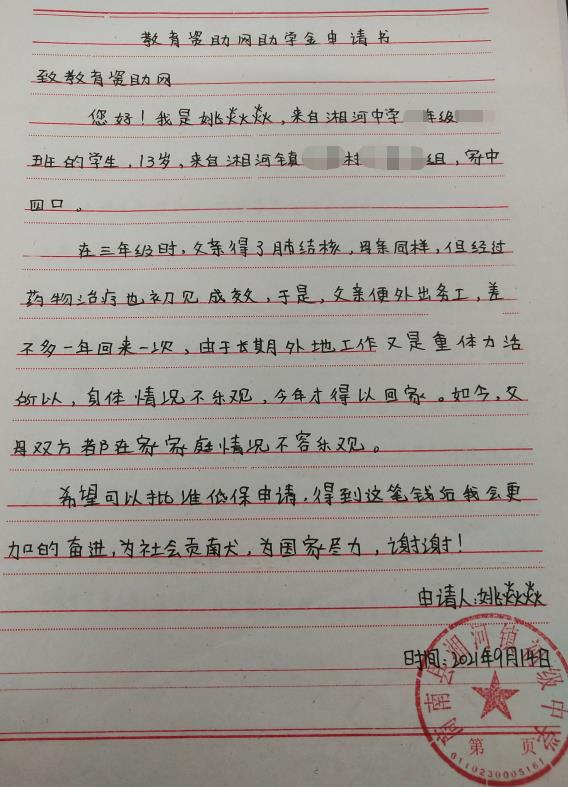 教育资助网助学金申请书
致教育资助网
您好！我是姚焱焱，来自湘河中学年级
班的学生，13岁，来自湘河镇村组，家中
四口。
在三年级时，父亲得了肺结核，母亲同样，但经过
药物治疗也初见成效，于是，父亲便外出务工，差
不多一年回来一次，由于长期外地工作又是重体力活
所以，身体情况不乐观，今年才得以回家。如今，父
母双方都在家家庭情况不容乐观。
希望可以批准低保申请，得到这笔钱后我会更
加的奋进，为社会贡献，为国家尽力，谢谢！
申请人：姚焱焱
时间：2021年9月14日
商南县湘河镇初级中学
第 页
6110230005161